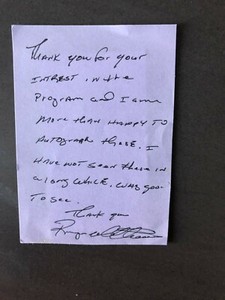 Thank you for your
interest in the
Program and I am
more than happy to
autograph these. I
have not seen these in
a long while. Was good
to see.
Thank you